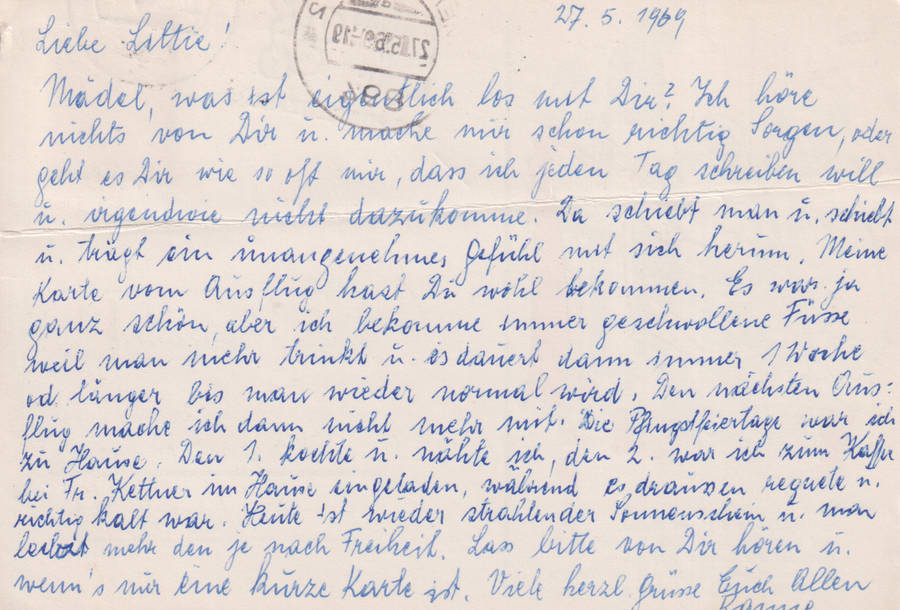 27. 5. 1969
Liebe Lottie!
Mädel, was ist eigentlich los mit Dir? Ich höre
nichts von Dir u. mache mir schon richtig Sorgen, oder
geht es Dir wie so oft mir, dass ich jeden Tag schreiben will
u. irgendwie nicht dazukomme. Da schiebt man u. schiebt
u. trägt ein unangenehmes Gefühl mit sich herum. Meine
Karte vom Ausflug hast Du wohl bekommen. Es war ja
ganz schön, aber ich bekomme immer geschwollene Füsse
weil man mehr trinkt u. es dauert dann immer 1 Woche
od. länger bis man wieder normal wird. Den nächsten Aus-
flug mache ich dann nicht mehr mit. Die Pfingstfeiertage war ich
zu Hause. Den 1. kochte u. nähte ich, den 2. war ich zum Kaffee
bei Fr. Kettner im Hause eingeladen, während es draussen regnete u.
richtig kalt war. Heute ist wieder strahlender Sonnenschein u. man
mehr den je nach Freiheit. Lass bitte von Dir hören u.
wenn's nur eine kurze Karte ist. Viele herzl. Grüsse Euch Allen